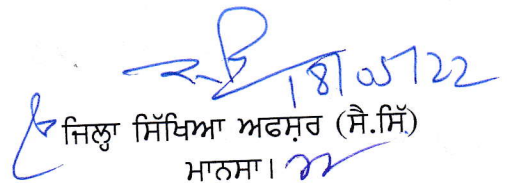 18/05/22
ਜਿਲ੍ਹਾ ਸਿੱਖਿਆ ਅਫਸ਼ਰ (ਸੈ.ਸਿੱ)
ਮਾਨਸਾ।